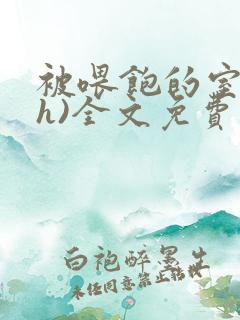 被喂饱的室
h)全文免費
白袍醉墨生
未经同意禁止转载